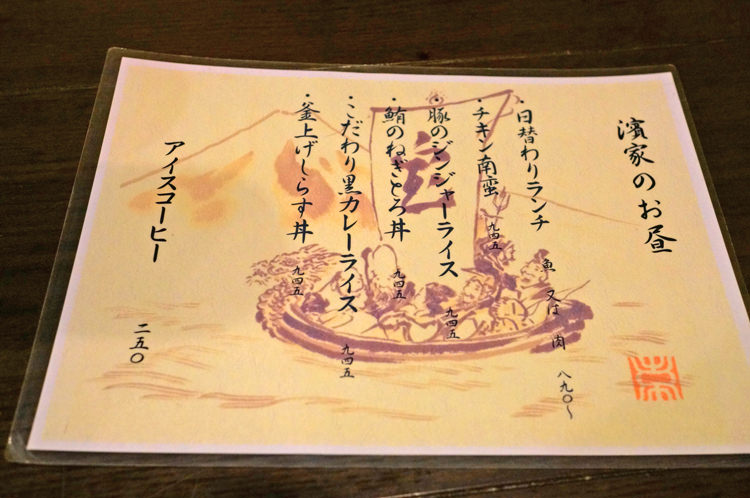 濱家のお昼
・日替わりランチ 魚 又は 肉 八九〇～
・チキン南蛮 九四五
・豚のジンジャーライス 九四五
・鮪のねぎとろ丼 九四五
・こだわり黒カレーライス 九四五
・釜上げしらす丼 九四五
アイスコーヒー 二五〇